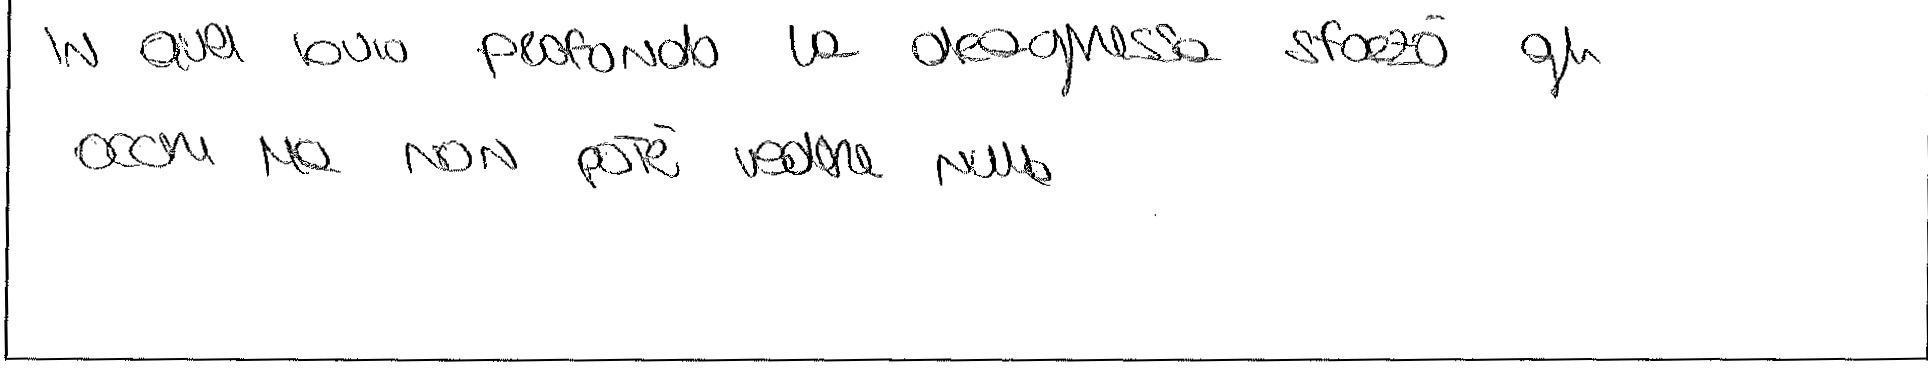 IN quel buio profondo la draghessa sforzò gli
occhi ma non potè vedere nulla